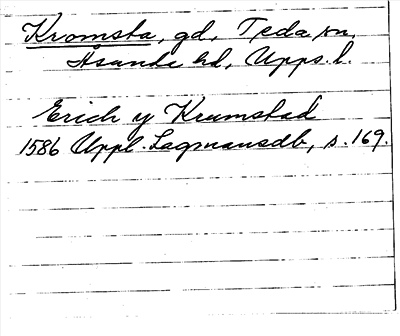 Kromsta, gd, Teda sn,
Åsunda hd, Upps. l.
Erich y Krumstad
1586 Uppl. Lagmansdb, s. 169.